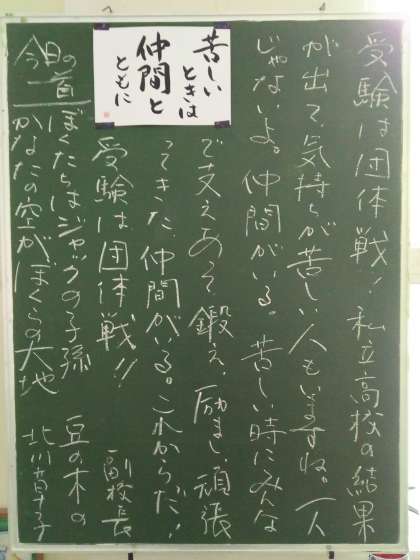 受験は団体戦！私立高校の結果
が出て、気持ちが苦しい人もいますね。一人
じゃないよ。仲間がいる。苦しい時にみんな
で支えあって鍛え、励まし、頑張
ってきた仲間がいる。これからだ！
受験は団体戦!!
副校長
苦しい
ときは
仲間と
ともに
今日の一首
ぼくたちはジャックの子孫 豆の木の
かなたの空がぼくらの大地 北川草子